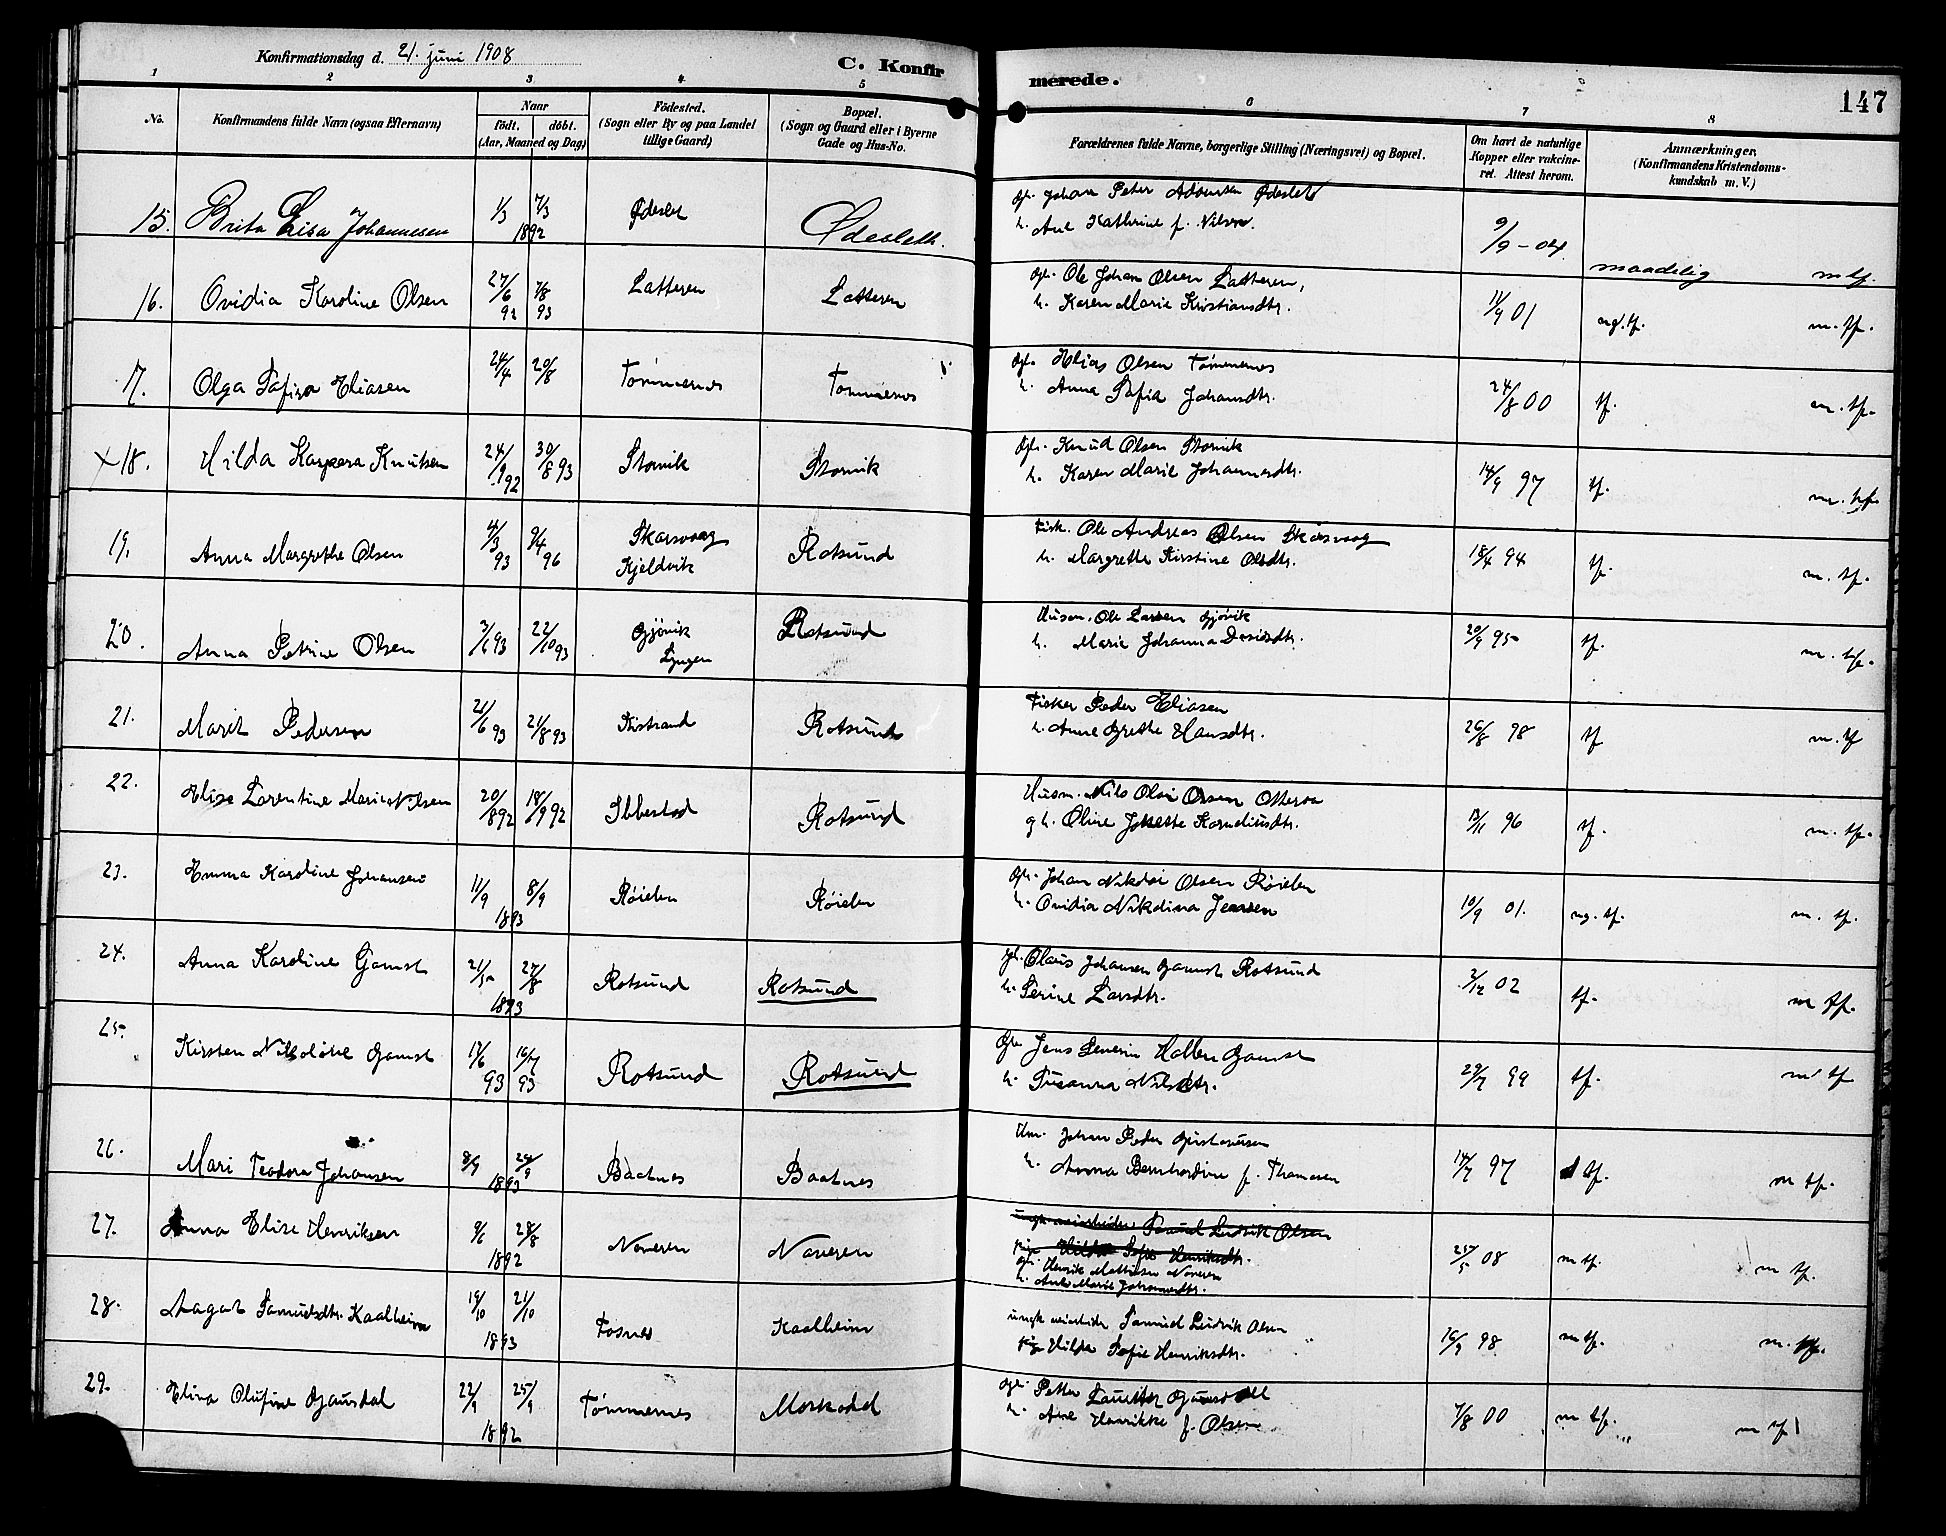 Konfirmationsdag d. 21. juni 1908
C. Konfirmerede.
147
1 2 3 4 5 6 7 8
No.
Konfirmandens fulde Navn (ogsaa Efternavn)
Naar
født. døbt.
(Aar, Maaned og Dag)
Fødested.
(Sogn eller By og paa Landet
tillige Gaard)
Bopæl.
(Sogn og Gaard eller i Byerne
Gade og Hus-No.
Forældrenes fulde Navne, borgerlige Stilling (Næringsvei) og Bopæl.
Om havt de naturlige
Kopper eller vakcine-
ret. Attest herom.
Anmærkninger,
(Konfirmandens Kristendoms-
kundskab m. V.)
15. Brita Lisa Johannesen 1/3 7/3 1892 Ødeslet Ødesleth.
Johan Peter Ødeslet
h. Ane Kathrine f. Nilsen.
9/9-04 maadelig m tf.
16. Ovidia Karoline Olsen 27/6 92 7/8 93 Latteren Latteren
gb. Ole Johan Olsen Latteren,
h. Karen Marie Kristiansdtr.
11/9 01 ng. tf. m. tf.
17. Olga Safira Eliasen 24/4 20/8 Tømmernes Tømmernes
Elias Olsen Tømmernes
h. Anna Safia Johansdtr.
24/8 00 tf. m. tf.
x18. Hilda Kaspara Knutsen 24/9 92 30/8 93 Storvik Storvik
Knud Olsen Storvik
h. Karen Marie Johannesdtr.
14/9 97 tf. m. tf.
19. Anna Margrethe Olsen 4/3 93 9/4 96 Skarsvaag Kjeldvik Rotsund
Fisk. Ole Andreas Olsen Skarsvaag
h. Margrethe Kirstine Olsdtr.
18/4 94 tf. m. tf.
20. Anna Petrine Olsen 3/6 93 22/10 93 Gjøvik Lyngen Rotsund
Husm. Ole Larsen Gjøvik
h. Marie Johanna Davidsdtr.
20/9 95 tf. m. tf.
21. Marit Pedersen 21/6 93 21/8 93 Kistrand Rotsund
Fisker Peder Eliasen
h. Anne Grethe Hansdtr.
26/8 98 tf m. tf
22. Elise Larentine Marie Nilsen 20/8 92 18/9 92 Ibbestad Rotsund
Husm. Nils Olai Olsen
g h. Oline Josette Korneliusdtr.
96 tf. m. tf.
23. Emma Karoline Johansen 11/9 8/9 1893 Røielen Røielen
Johan Nikolai Olsen Røielen
h. Ovidia Nikolina Jensen
10/9 01. ng. tf. m. tf.
24. Anna Karoline Gamst 21/5 27/8 1893 Rotsund Rotsund
Olaus Johansen Gamst Rotsund
h. Serine Larsdtr.
2/12 02 tf. m tf.
25. Kirsten Nikoline Gamst 17/6 93 16/7 93 Rotsund Rotsund
Jens Severin Gamst
h. Susanna Nilsdtr.
29/7 99 tf. m tf
26. Mari Teodora Johansen 8/9 24/9 1893 Baatnes Baatnes
Hm. Johan Peder
h. Anna Bernhardine f. Thomasen
14/7 97 tf. m tf.
27. Anna Elise Henriksen 9/6 28/8 1892 Naveren Naveren
Samuel Ludvik Olsen
Hilda Sofie Henriksdtr.
Henrik Mathisen Naveren
h. Ane Marie Johannesdtr.
25/5 08 m tf. m tf.
28. Aagat Samuelsdtr. Kaalheim 19/10 21/10 1893 Fosnes Kaalheim
ungk. arbeider Samuel Ludvik Olsen
Hilda Sofie Henriksdtr.
16/9 98 m tf. m. tf.
29. Elina Olufine Gausdal 22/9 25/9 1892 Tømmernes Moskodal
Petter Gausdal
h. Ane Henrikke f. Olsen
7/8 00 m tf. m tf